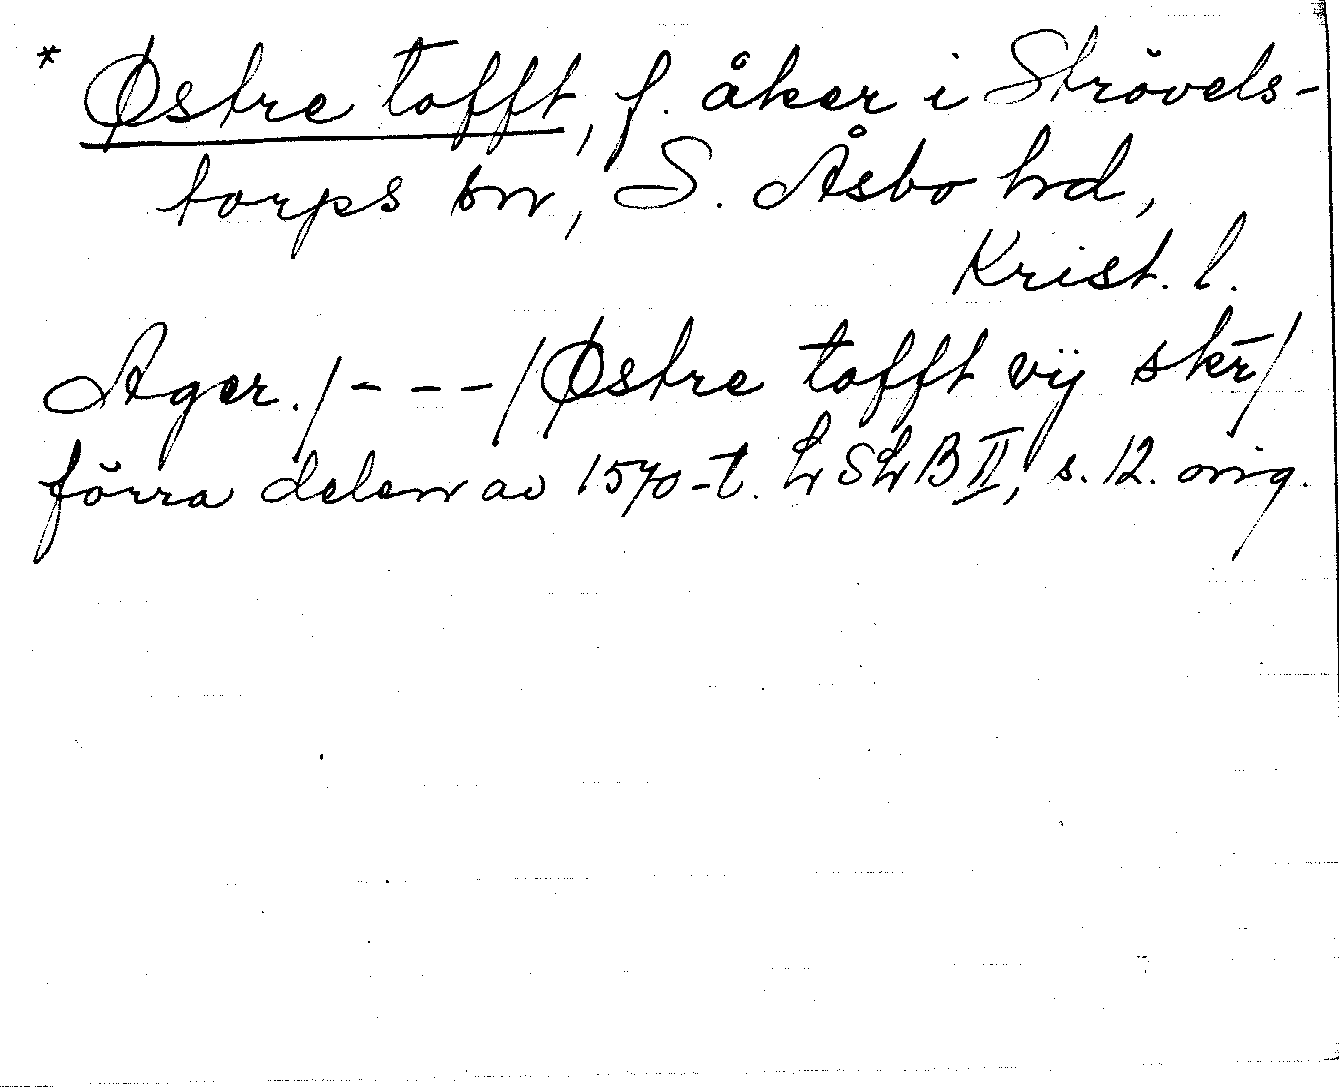 * Østre tofft, f. åker i Strövels-
torps sn, S. Åsbo hd,
Krist. l.
Ager. /- - -/ Østre tofft vij skr̄/
förra delen av 1570-t. LSLB II, s. 12. orig.